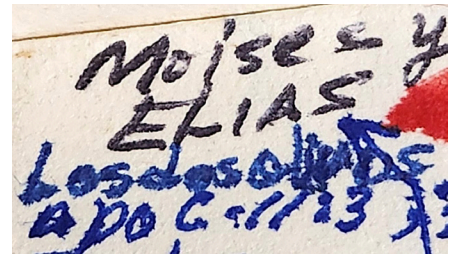 Moises y
ELIAS
Los dos olivos
APOC. 11:3